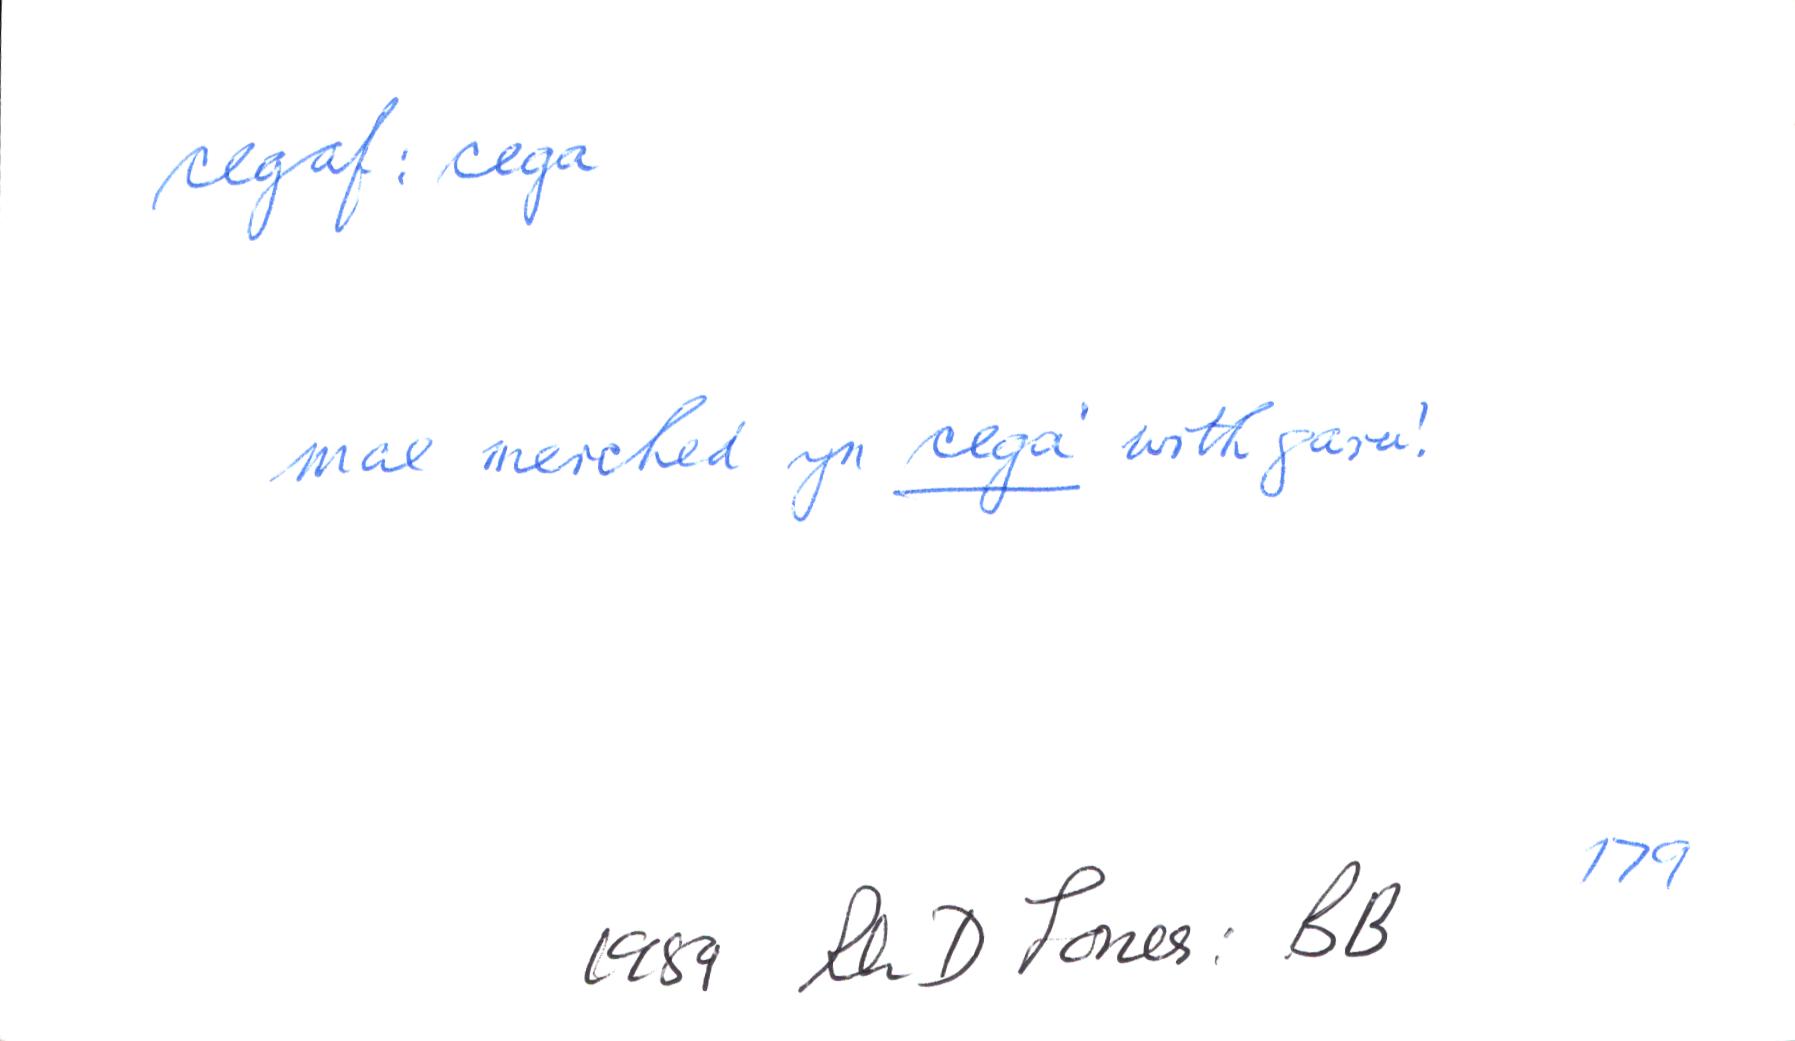 cegaf: cega
mae merched yn cega' with garu!
179
1989 Rh D Jones: BB